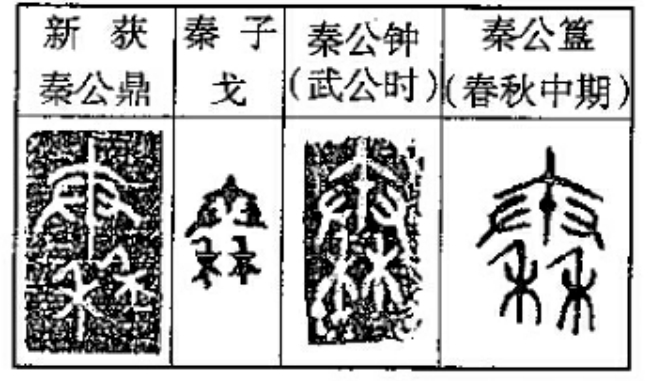 新 获
秦公鼎
秦 子
戈
秦公钟
(武公时)
秦公簋
(春秋中期)